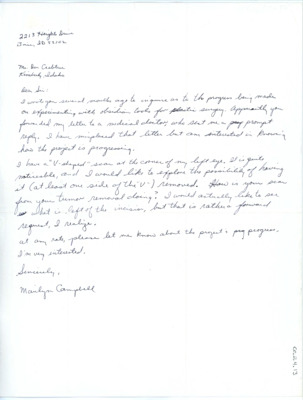 2213 Heights Drive
Mr. Don Crabtree
Kimberly, Idaho
Dear Sir:
I wrote you several months ago to inquire as to the progress being made
on experimenting with obsidian tools for plastic surgery. Apparently you
forwarded my letter to a medical doctor, who sent me a prompt
reply. I have misplaced that letter but am interested in knowing
how the project is progressing.
I have a "V-shaped" scar at the corner of my left eye. It is quite
noticeable, and I would like to explore the possibility of having
it (at least one side of the V) removed. How is your scar
from your tumor removal doing? I would actually like to see
what is left of the incision, but that is rather a forward
request, I realize.
At any rate, please let me know about the project's progress.
I'm very interested.
Sincerely,
Marilyn Campbell